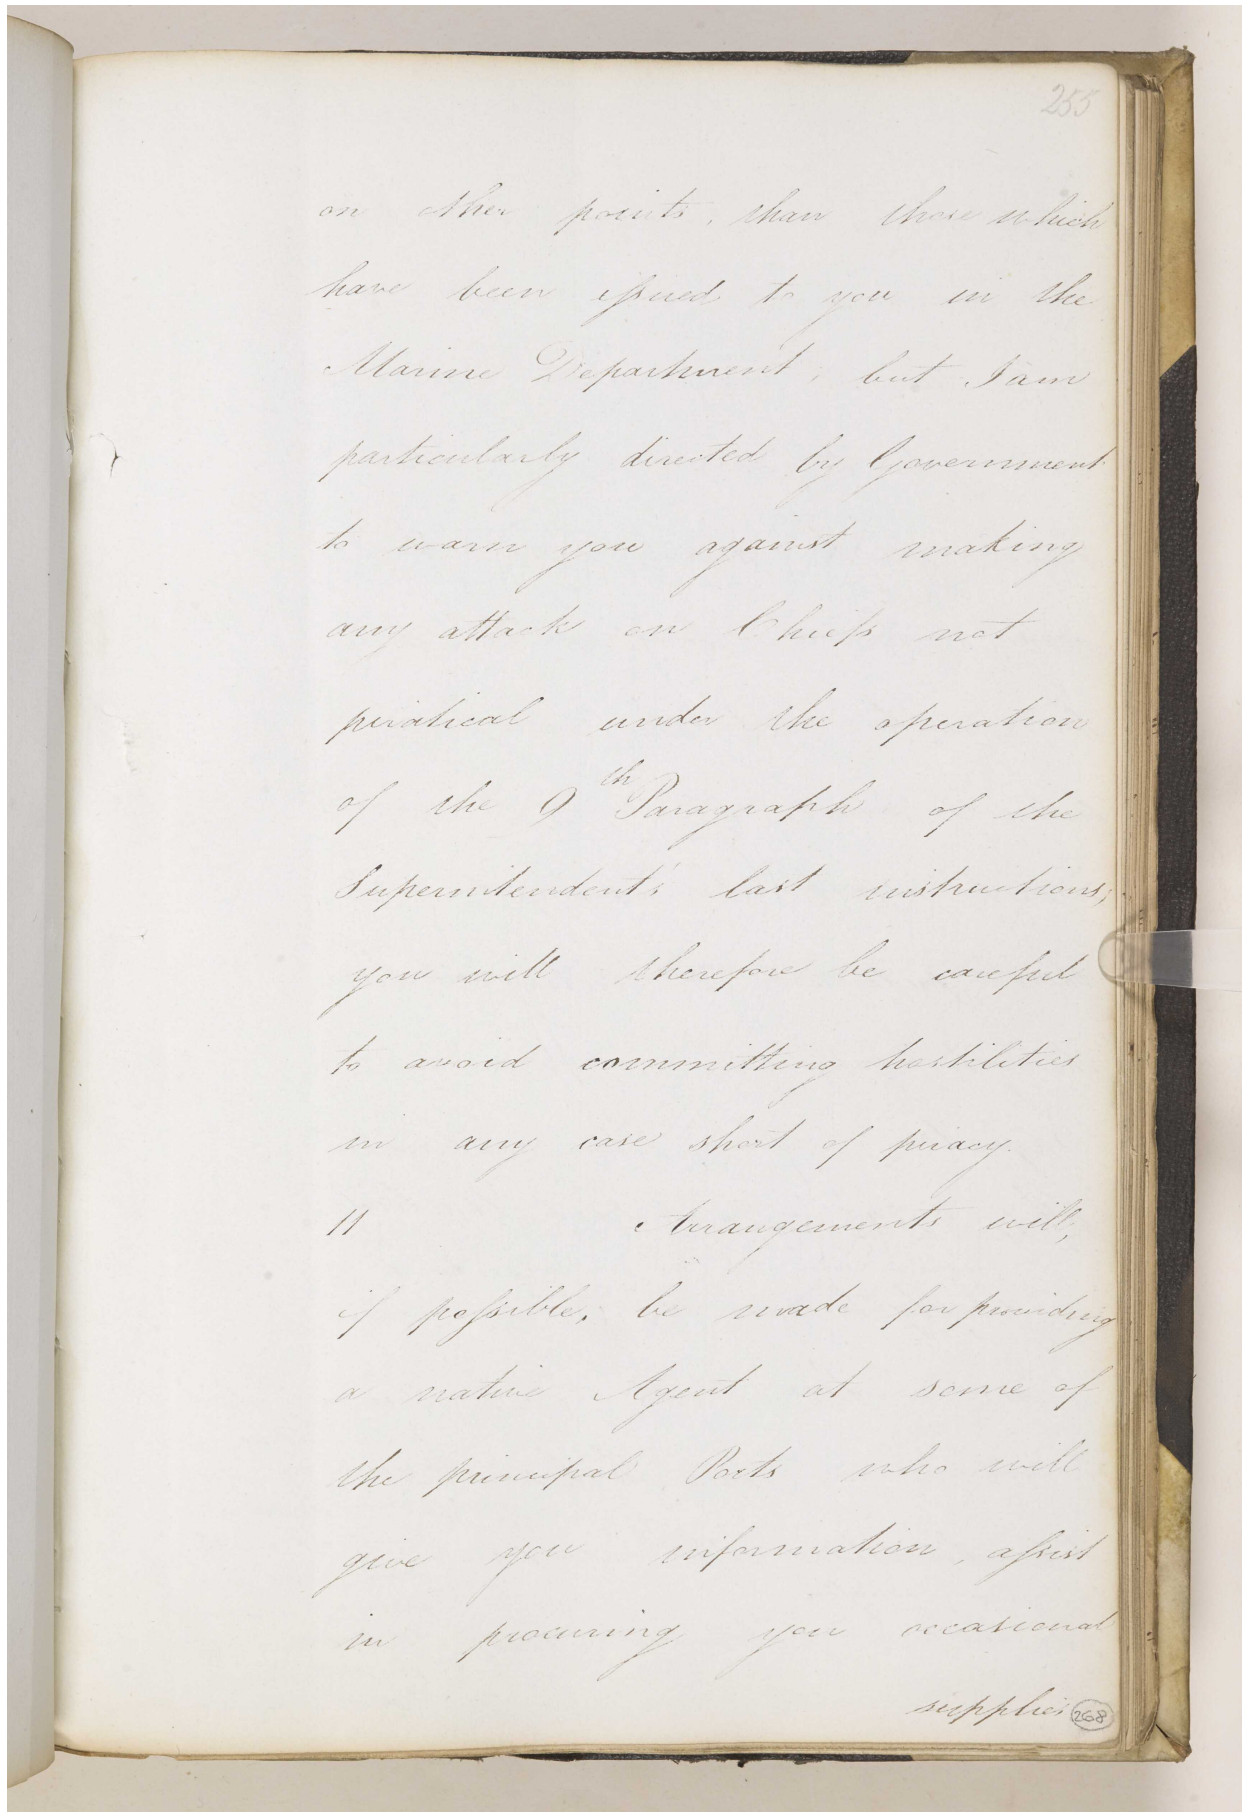 255
on other points, than those which
have been issued to you in the
Marine Department; but I am
particularly directed by Government
to warn you against making
any attack on Chiefs not
piratical under the operation
of the 9th Paragraph of the
Superintendent's last instructions;
you will therefore be careful
to avoid committing hostilities
in any case short of piracy.
11 Arrangements will,
if possible, be made for providing
a native Agent at some of
the principal Ports who will
give you information, assist
in procuring you occasional
supplies
268